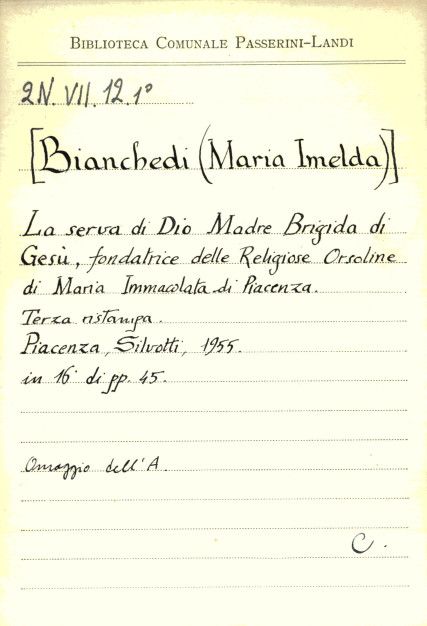 BIBLIOTECA COMUNALE PASSERINI-LANDI
2N. VII. 12. 1°
[Bianchedi (Maria Imelda)]
La serva di Dio Madre Brigida di
Gesù, fondatrice delle Religiose Orsoline
di Maria Immacolata di Piacenza.
Terza ristampa.
Piacenza, Silvotti, 1955.
in 16° di pp. 45.
Omaggio dell'A.
C.